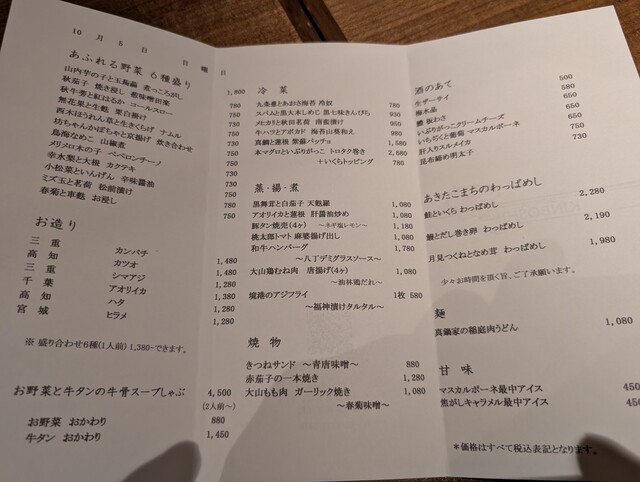 10月5日 日曜日
あふれる野菜 6種盛り 1,800
山内芋の子と玉蒟蒻 煮っころがし 780
秋茄子 焼き浸し 葱味噌田楽 750
秋牛蒡と紅はるか コールスロー 730
無花果と生麩 栗白掛け 750
西木ほうれん草と生きくらげ ナムル 750
坊ちゃんかぼちゃと京揚げ 炊き合わせ 750
鳥海なめこ 山椒煮
メリメロ木の子 ペペロンチーノ 730
幸水梨と大根 カクテキ 730
小松菜といんげん 辛味醤油 730
ミズ玉と若荷 松前漬け 780
春菊と車麩 お浸し 750
お造り
三重 カンパチ 1,480
高知 カツオ 1,480
三重 シマアジ 1,280
千葉 アオリイカ 1,380
高知 ハタ 1,280
宮城 ヒラメ 1,280
※ 盛り合わせ6種(1人前) 1,380~できます。
お野菜と牛タンの牛骨スープしゃぶ 4,500
(2人前~)
お野菜 おかわり 880
牛タン おかわり 1,450
冷菜
九条葱とあおさ海苔 冷奴 780
スパムと黒大木しめじ 黒七味きんぴら 930
メヒカリと秋田若荷 南蛮漬け 950
牛ハツとアボカド 海苔山葵和え 980
真鯛と蓮根 紫蘇バッチョ 1,580
本マグロといぶりがっこ トロタク巻き 2,680
+いくらトッピング 780
蒸・揚・煮
黒舞茸と白茄子 天麩羅 1,080
アオリイカと蓮根 肝醤油炒め 1,080
豚タン焼売(4ヶ) ~ネギ塩レモン~ 1,180
桃太郎トマト 麻婆揚げ出し 1,080
和牛ハンバーグ 1,780
~八丁デミグラスソース~
大山鶏むね肉 唐揚げ(4ヶ) 1,080
~柚林鶏だれ~
境港のアジフライ 1枚 580
~福神漬けタルタル~
焼物
きつねサンド ~青唐味噌~ 880
赤茄子の一本焼き 1,280
大山もも肉 ガーリック焼き 1,080
~春菊味噌~
酒のあて
生ザーサイ 500
梅水晶 580
板わさ 650
いぶりがっこクリームチーズ 650
いちぢくと葡萄 マスカルポーネ 650
肝入りスルメイカ 750
昆布締め明太子 730
あきたこまちのわっぱめし
鮭といくら わっぱめし 2,280
鰻とだし巻き卵 わっぱめし 2,190
月見つくねとなめ茸 わっぱめし 1,980
少々お時間を頂く旨、ご了承願います。
麺
真鍋家の稲庭肉うどん 1,080
甘味
マスカルポーネ最中アイス 450
焦がしキャラメル最中アイス 450
*価格はすべて税込表記となります。